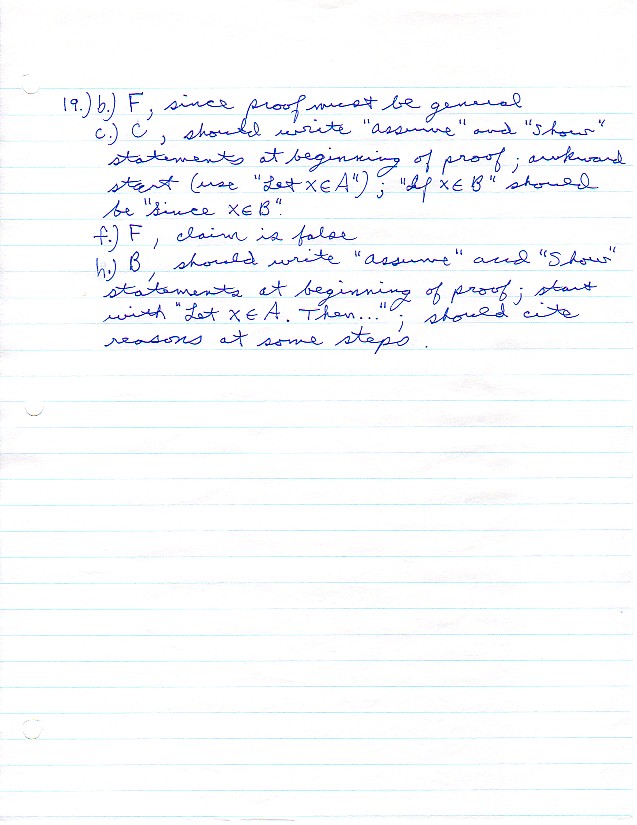 19.) b.) F, since proof must be general
c.) C, should write "assume" and "show"
statements at beginning of proof; awkward
start (use "Let x∈A"); "If x∈B" should
be "Since x∈B".
f.) F, claim is false
h.) B, should write "assume" and "Show"
statements at beginning of proof; start
with "Let x∈A. Then..."; should cite
reasons at some steps.